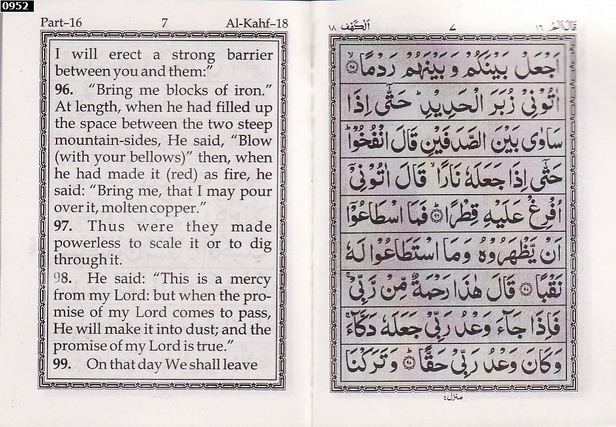 0952
Part–16 7 Al-Kahf–18
I will erect a strong barrier
between you and them:”
96. “Bring me blocks of iron.”
At length, when he had filled up
the space between the two steep
mountain-sides, He said, “Blow
(with your bellows)” then, when
he had made it (red) as fire, he
said: “Bring me, that I may pour
over it, molten copper.”
97. Thus were they made
powerless to scale it or to dig
through it.
98. He said: “This is a mercy
from my Lord: but when the pro-
mise of my Lord comes to pass,
He will make it into dust; and the
promise of my Lord is true.”
99. On that day We shall leave
قال الم ١٦ ٧ الكهف ١٨
اَجْعَلْ بَيْنَكُمْ وَبَيْنَهُمْ رَدْمًا ۝٩٥
اٰتُوْنِيْ زُبَرَ الْحَدِيْدِ ؕ حَتّٰۤى اِذَا
سَاوٰى بَيْنَ الصَّدَفَيْنِ قَالَ انْفُخُوْا ؕ
حَتّٰۤى اِذَا جَعَلَهٗ نَارًا ۙ قَالَ اٰتُوْنِيْۤ
اُفْرِغْ عَلَيْهِ قِطْرًا ۝٩٦ فَمَا اسْطَاعُوْۤا
اَنْ يَّظْهَرُوْهُ وَمَا اسْتَطَاعُوْا لَهٗ
نَقْبًا ۝٩٧ قَالَ هٰذَا رَحْمَةٌ مِّنْ رَّبِّيْ ۚ
فَاِذَا جَآءَ وَعْدُ رَبِّيْ جَعَلَهٗ دَكَّآءَ ۚ
وَكَانَ وَعْدُ رَبِّيْ حَقًّا ۝٩٨ وَتَرَكْنَا
منزل ٤